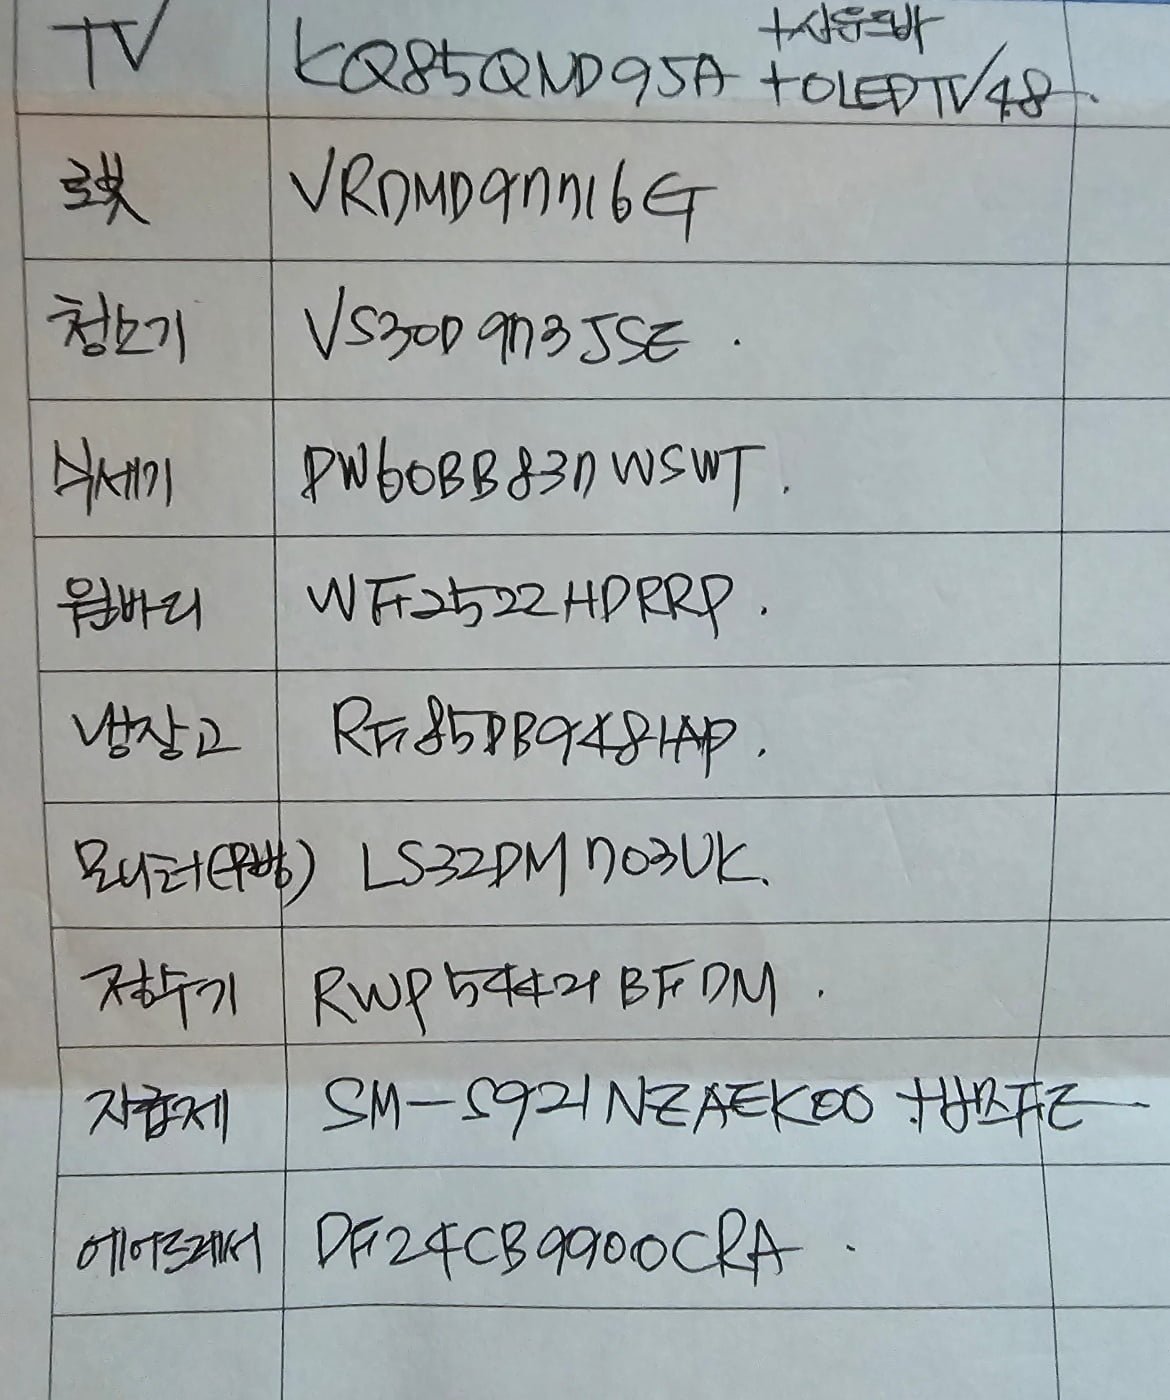 +사운드바
TV KQ85QND95A +OLEDTV48.
로봇 VR7MD97716G
청소기 VS30D973JSE.
식세기 DW60BB837WSWT.
원바디 WF2522HDRRP.
냉장고 RF85DB9481AP.
모니터(무빙) LS32DM703UK.
정수기 RWP54421BFDM.
자급제 SM-S921NZAEK00
에어드레서 DF24CB9900CRA.